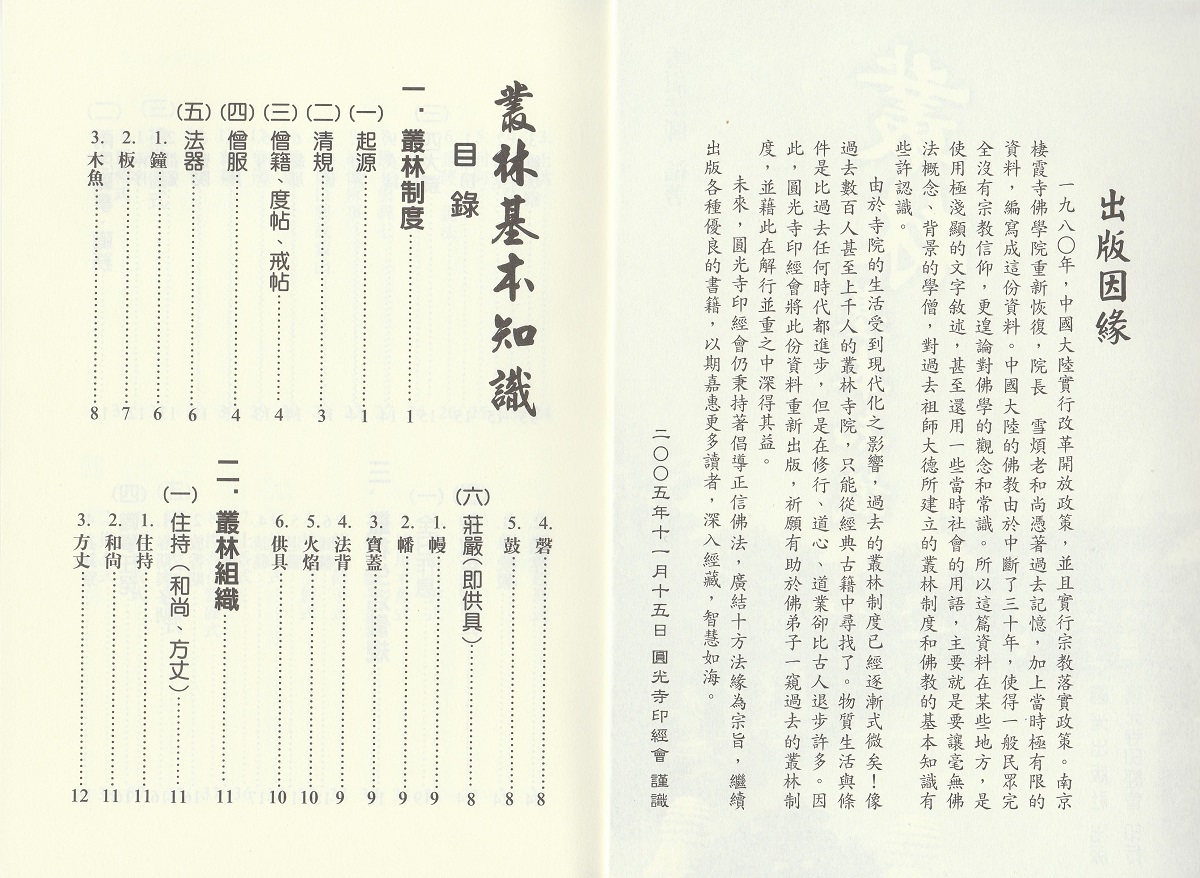 出版因緣
一九八〇年，中國大陸實行改革開放政策，並且實行宗教落實政策。南京
棲霞寺佛學院重新恢復，院長　雪煩老和尚憑著過去記憶，加上當時極有限的
資料，編寫成這份資料。中國大陸的佛教由於中斷了三十年，使得一般民眾完
全沒有宗教信仰，更遑論對佛學的觀念和常識。所以這篇資料在某些地方，是
使用極淺顯的文字敘述，甚至還用一些當時社會的用語，主要就是要讓毫無佛
法概念、背景的學僧，對過去祖師大德所建立的叢林制度和佛教的基本知識有
些許認識。
由於寺院的生活受到現代化之影響，過去的叢林制度已經逐漸式微矣！像
過去數百人甚至上千人的叢林寺院，只能從經典古籍中尋找了。物質生活與條
件是比過去任何時代都進步，但是在修行、道心、道業卻比古人退步許多。因
此，圓光寺印經會將此份資料重新出版，祈願有助於佛弟子一窺過去的叢林制
度，並藉此在解行並重之中深得其益。
未來，圓光寺印經會仍秉持著倡導正信佛法，廣結十方法緣為宗旨，繼續
出版各種優良的書籍，以期嘉惠更多讀者，深入經藏，智慧如海。
二〇〇五年十一月十五日 圓光寺印經會 謹識
叢林基本知識
目錄
一．叢林制度……1
（一）起源……1
（二）清規……3
（三）僧籍、度帖、戒帖……4
（四）僧服……4
（五）法器……6
1.鐘……6
2.板……7
3.木魚……8
4.磬……8
5.鼓……8
（六）莊嚴（即供具）……8
1.幔……9
2.幡……9
3.寶蓋……9
4.法背……9
5.火焰……10
6.供具……10
二．叢林組織……11
（一）住持（和尚、方丈）……11
1.住持……11
2.和尚……11
3.方丈……12